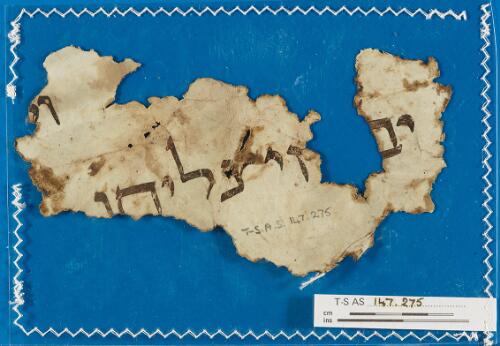 יב ויצליחו
T-S.A.S. 147.275
T-S AS 147.275
cm
ins